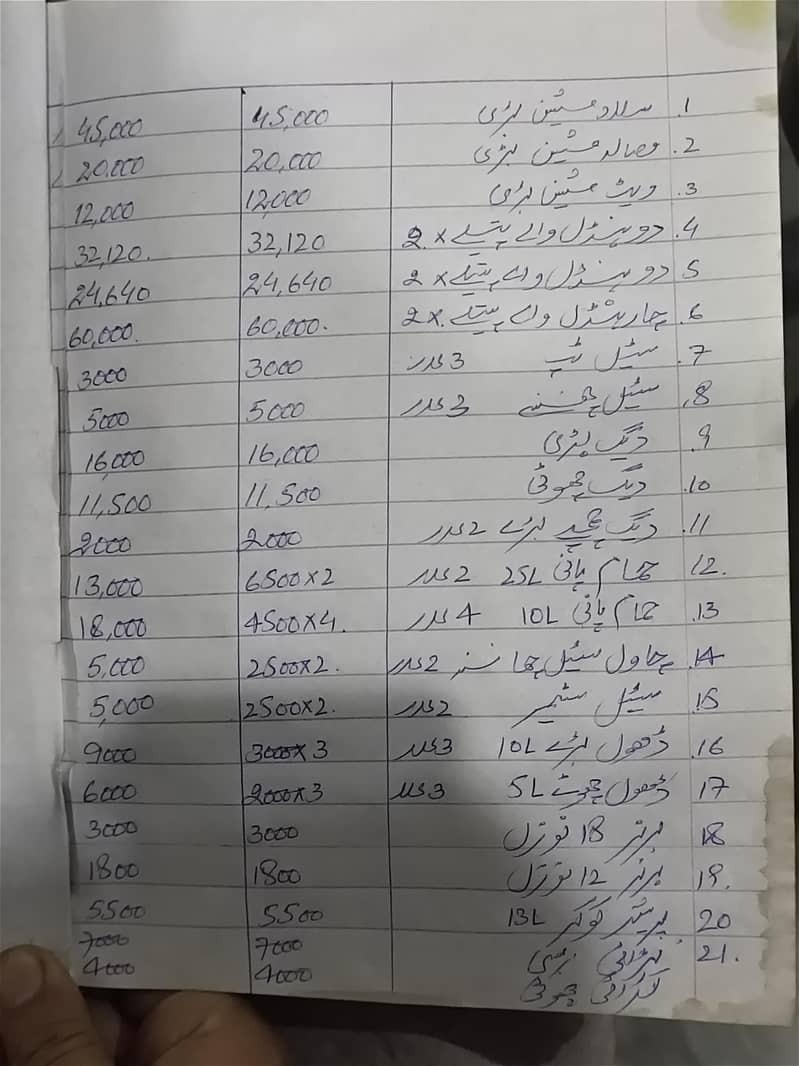 1. سلاد مشین بڑی 45,000 45,000
2. مصالہ مشین بڑی 20,000 20,000
3. ویٹ مشین بڑی 12,000 12,000
4. دو ہینڈل والے پتیلے x 2 32,120 32,120.
5 دو ہینڈل والے پتیلے x 2 24,640 24,640
6. چار ہینڈل والے پتیلے x 2 60,000. 60,000.
7. سٹیل ٹپ 3 عدد 3000 3000
8. سٹیل 3 عدد 5000 5000
9. دیگ بڑی 16,000 16,000
10. دیگ چھوٹی 11,500 11,500
11. دیگ چمچے بڑے 2 عدد 2000 2000
12. حمام پانی 25L 2 عدد 6500x2 13,000
13. حمام پانی 10L 4 عدد 4500x4. 18,000
14. چاول سٹیل 2 عدد 2500x2. 5,000
15. سٹیل سٹیمر 2 عدد 2500x2. 5,000
16. ڈھول بڑے 10L 3 عدد 3000x3 9000
17 ڈھول چھوٹے 5L 3 عدد 2000x3 6000
18 برنر 18 نوزل 3000 3000
19. برنر 12 نوزل 1800 1800
20 پریشر کوکر 13L 5500 5500
21. کڑاہی بڑی 7000 7000
کڑاہی چھوٹی 4000 4000